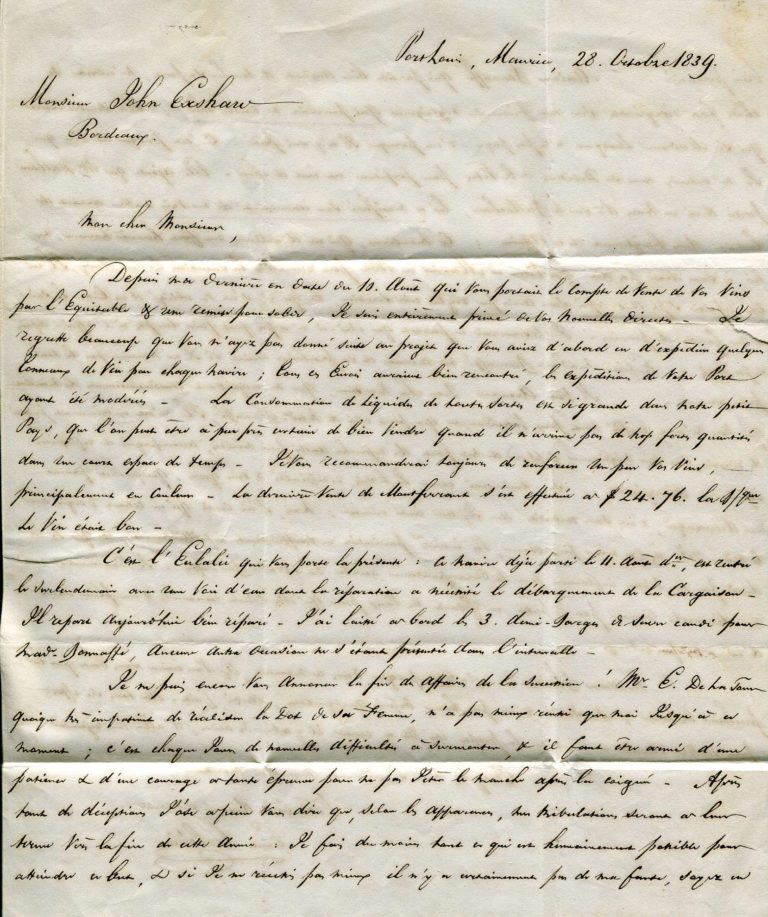 Port Louis, Maurice, 28. Octobre 1839.
Monsieur John Exshaw
Bordeaux.
Mon cher Monsieur,
Depuis ma dernière en date du 10. Août qui vous portait le Compte de Vente de Vos Vins
par l'Equitable & une remise pour solde, Je suis entièrement privé de Vos Nouvelles directes - Je
regrette beaucoup que Vous n'ayez pas donné suite au projet que Vous aviez d'abord eu d'expédier quelques
Tonneaux de Vin par chaque navire ; tous ces Envois auraient bien rencontré, les expéditions de Votre Port
ayant été modérées - La Consommation de Liquides de toutes sortes est si grande dans notre petit
Pays, que l'on peut être à peu près certain de bien Vendre quand il n'arrive pas de trop fortes quantités
dans un court espace de temps - Je Vous recommandrai toujours de renforcer Un peu Vos Vins,
principalement en Couleur - La dernière Vente de Montferrant s'est effectuée à $ 24.76. la
Le Vin était bon -
C'est l'Eulalie qui Vous porte la présente : ce navire déjà parti le 11. Août der, est rentré
le surlendemain avec une Voie d'eau dont la réparation a nécessité le débarquement de la Cargaison -
Il repart Aujourd'hui bien réparé - J'ai laissé à bord les 3. demi-Barges de Sucre candi pour
Made Bonnaffé, Aucune Autre Occasion ne s'étant présentée dans l'intervalle -
Je ne puis encore Vous Annoncer la fin des Affaires de la Succession ! Mr. E. De La Tour
quoique très impatient de réaliser la Dot de sa Femme, n'a pas mieux réussi que moi Jusqu'à ce
moment ; c'est chaque Jour de nouvelles difficultés à Surmonter, & il faut être armé d'une
patience & d'une courage à toute épreuve pour ne pas Jeter le manche après la coignée - Après
tant de déceptions J'ose à peine Vous dire que, selon les apparences, nos tribulations seront à leur
terme Vers la fin de cette Année : Je fais du moins tout ce qui est humainement possible pour
atteindre ce but, & si Je ne réussis pas mieux il n'y a certainement pas de ma faute, soyez en